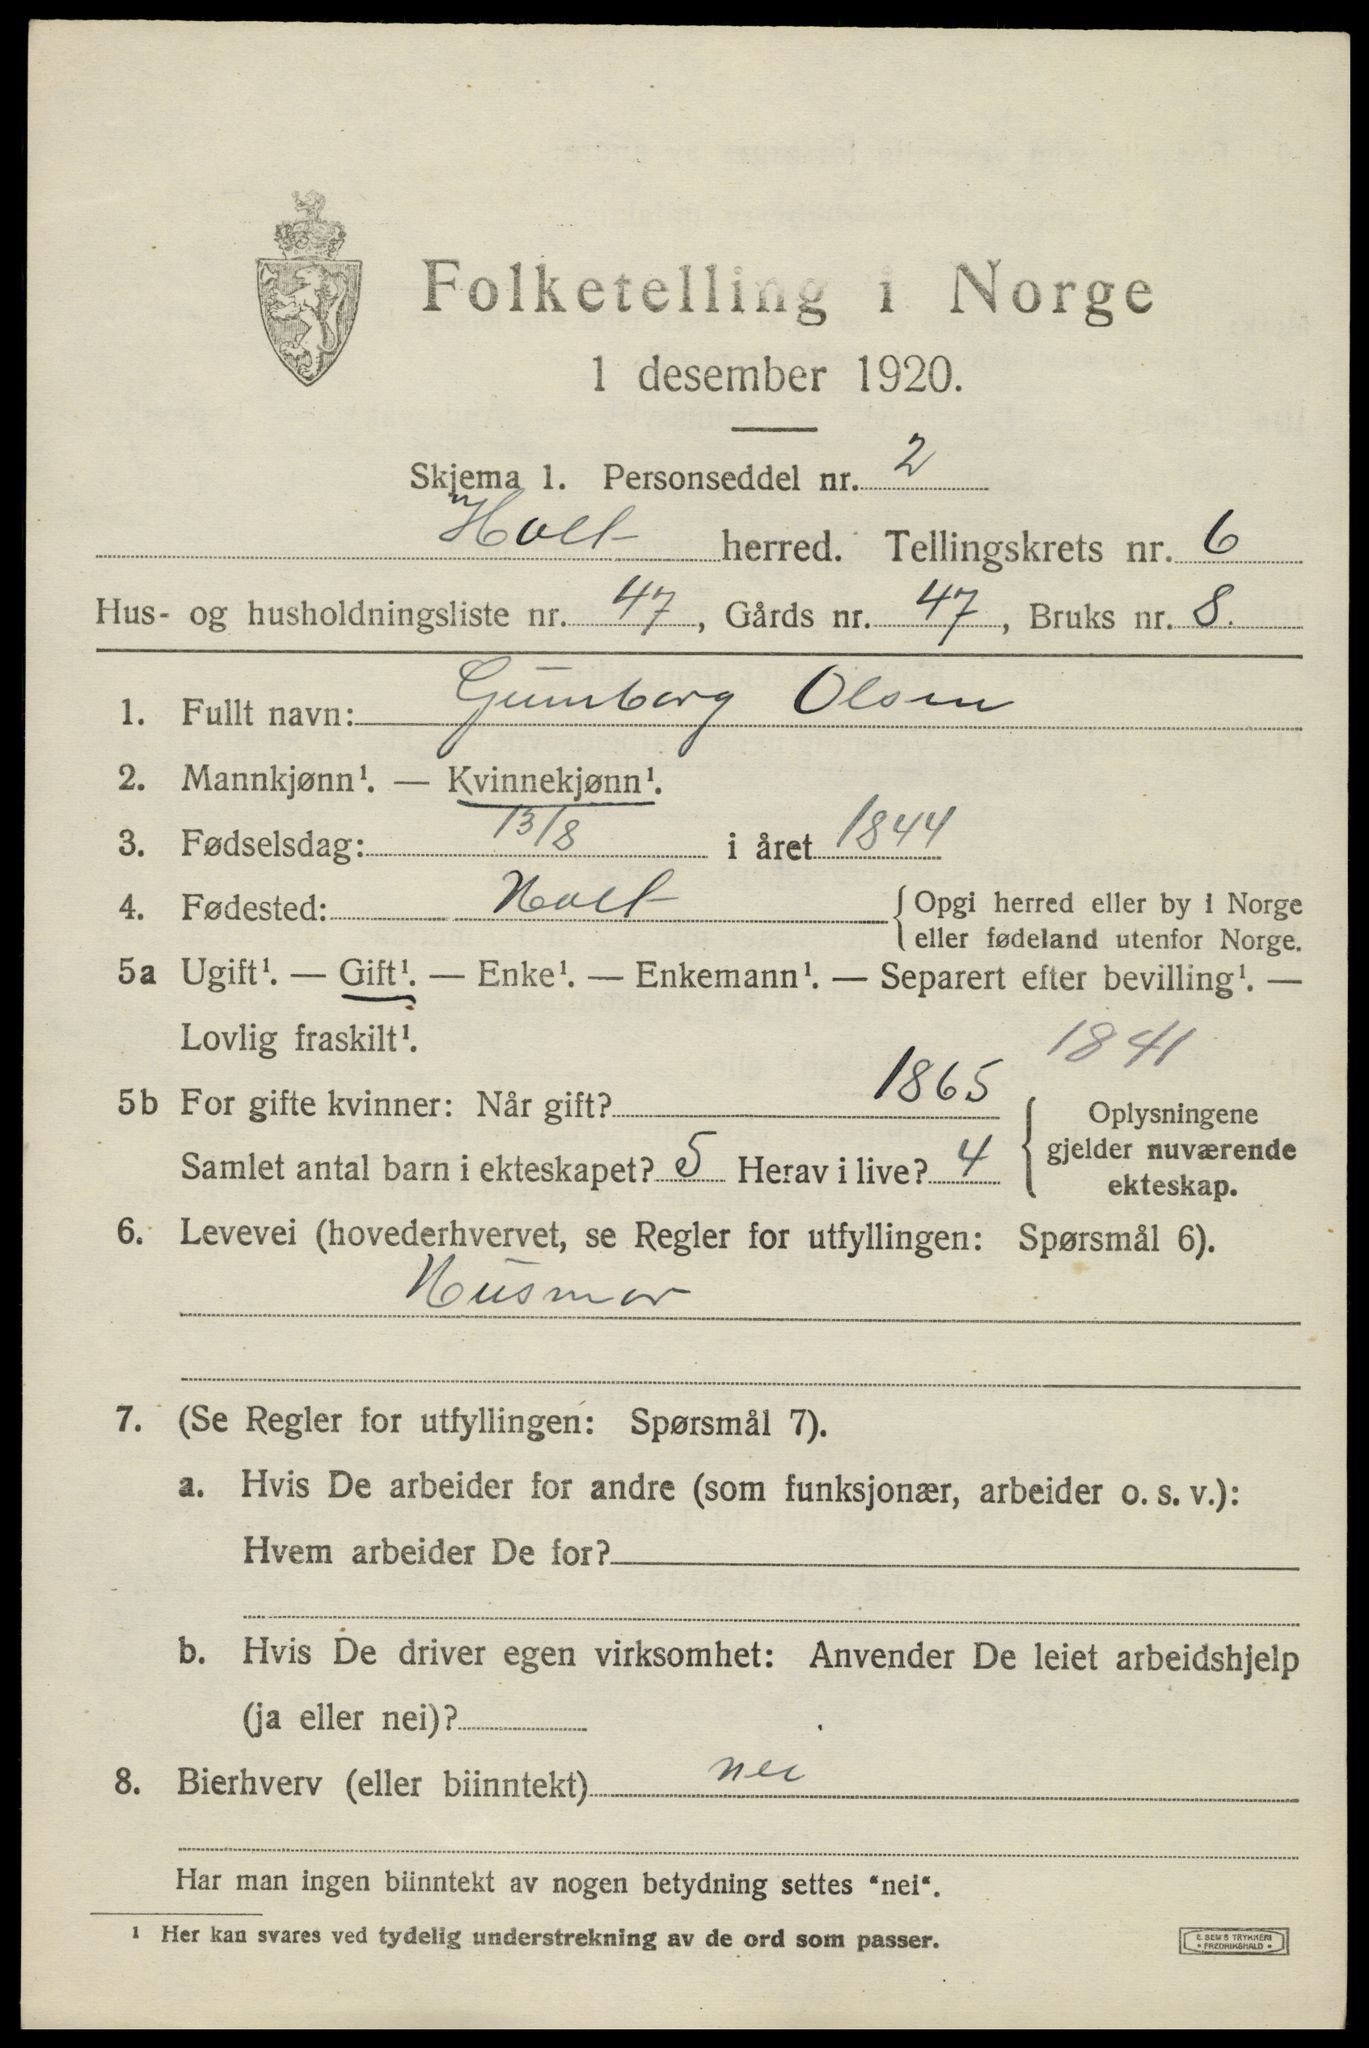 Folketelling i Norge
1 desember 1920.
Skjema 1. Personseddel nr. 2
Holt herred. Tellingskrets nr. 6
Hus- og husholdningsliste nr. 47, Gårds nr. 47, Bruks nr. 8.
1. Fullt navn: Gunborg Olsen
2. Mannkjønn¹. — Kvinnekjønn¹.
3. Fødselsdag: 13/8 i året 1844
4. Fødested: Holt { Opgi herred eller by i Norge
eller fødeland utenfor Norge.
5a Ugift¹. — Gift¹. — Enke¹. — Enkemann¹. — Separert efter bevilling¹. —
Lovlig fraskilt¹.
1841
5b For gifte kvinner: Når gift? 1865
Samlet antal barn i ekteskapet? 5 Herav i live? 4
{ Oplysningene
gjelder nuværende
ekteskap.
6. Levevei (hovederhvervet, se Regler for utfyllingen: Spørsmål 6).
Husmor
7. (Se Regler for utfyllingen: Spørsmål 7).
a. Hvis De arbeider for andre (som funksjonær, arbeider o. s. v.):
Hvem arbeider De for?
b. Hvis De driver egen virksomhet: Anvender De leiet arbeidshjelp
(ja eller nei)?
8. Bierhverv (eller biinntekt) nei
Har man ingen biinntekt av nogen betydning settes "nei".
¹ Her kan svares ved tydelig understrekning av de ord som passer.
E. SEM'S TRYKKERI
• FREDRIKSHALD •